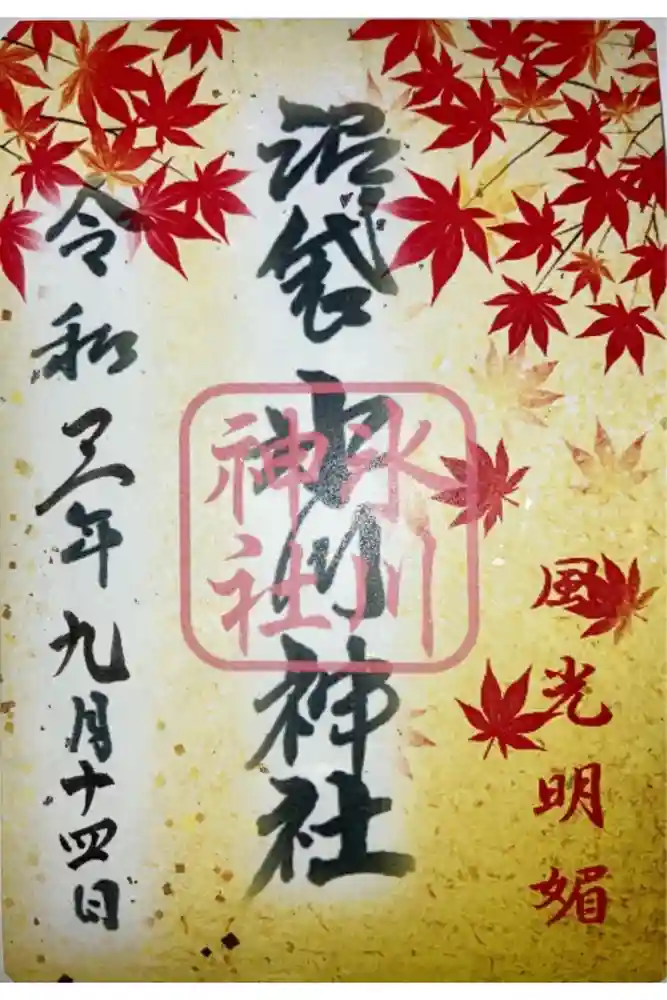 風光明媚
沼袋氷川神社
氷川神社
令和三年九月十四日